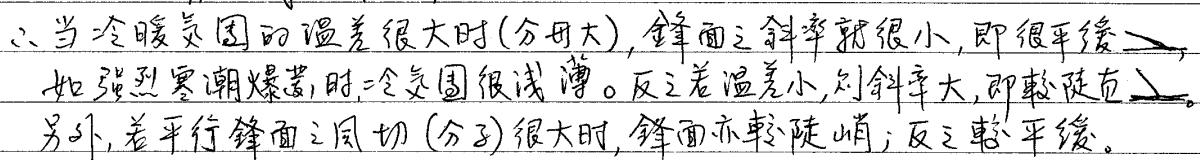 ∴当冷暖気团的温差很大时(分母大),鋒面之斜率就很小,即很平緩
如强烈寒潮爆发,时,冷気团很浅薄。反之若温差小,则斜率大,即較陡直。
另外,若平行鋒面之风切(分子)很大时,鋒面亦較陡峭;反之較平缓。